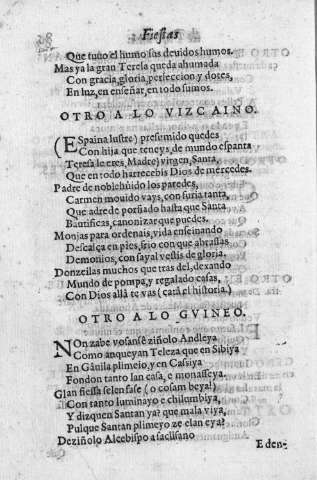 Fiestas
Que tuuo el humo sus deuidos humos.
Mas ya la gran Teresa queda ahumada
Con gracia, gloria, perfeccion y dotes,
En luz, en enseñar, en todo sumos.
OTRO A LO VIZCAINO.
(Espaina lustre) presumido quedes
Con hija que teneys, de mundo espanta
Teresa le eres, Madre, virgen, Santa,
Que en todo harrecebis Dios de mercedes.
Padre de noble los paredes,
Carmen mouido vays, con furia tanta,
Que adre de porfiado hasta que Santa
Bautificas, canonizar que puedes.
Monjas para ordenais, vida enseinando
Descalça en pies, frio con que abrassas
Demonios, con sayal vestis de gloria.
Donzeilas muchos que tras del, dexando
Mundo de pompa, y regalado casas,
Con Dios allà te vas (catà el historia.)
OTRO A LO GVINEO.
Non zabe vosanse ziñolo Andleya
Como anqueyan Teleza que en Sibiya
En Gàuila plimeio, y en Cassiya
Fondon tanto lan casa, e monasseya.
Glan fiessa selen fase (o cosam beya!)
Con tanto luminayo e chilumbiya,
Y dizquen Santan ya? que mala viya,
Pulque Santan plimeyo ze elan eya?
Deziñolo Alcebispo a saclisano
E den-